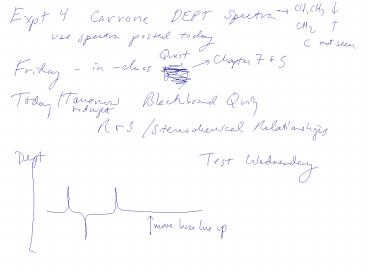 Expt 4 Carvone DEPT Spectra → CH, CH3 ↓
CH2 ↑
use spectra posted today
C not seen
Quest
Friday - in-class → Chapter 7 & 5
Today/Tomorrow Blackboard Quiz
midnight
R & S / Stereochemical Relationships
Dept
Test Wednesday
↑ move base line up